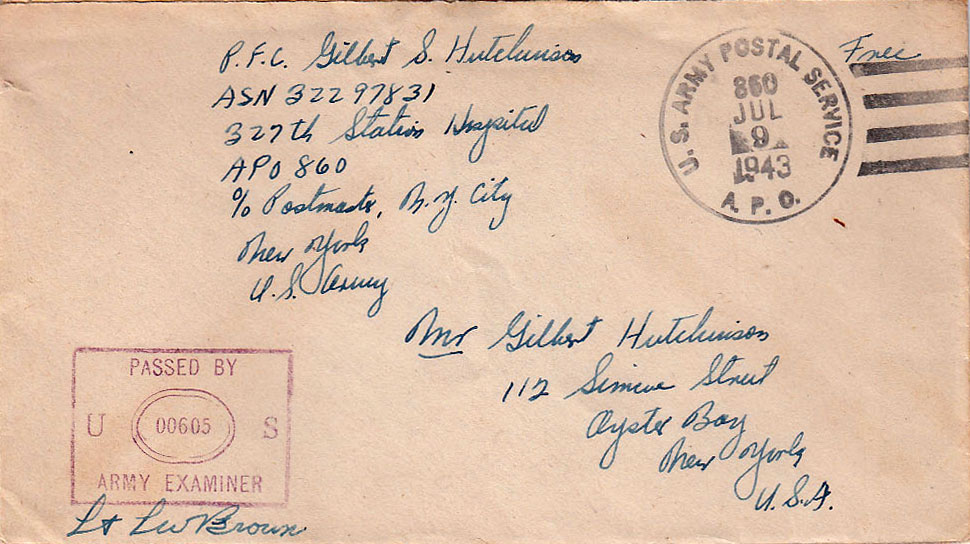 P.F.C. Gilbert S. Hutchinson
ASN 32297831
327th Station Hospital
APO 860
% Postmaster, N.Y. City
New York
U.S. Army
Free
U.S. ARMY POSTAL SERVICE
860
JUL
9
1943
A.P.O.
Mr Gilbert Hutchinson
112 Street
Oyster Bay
New York
U.S.A.
PASSED BY
U 00605 S
ARMY EXAMINER
Lt LW Brown